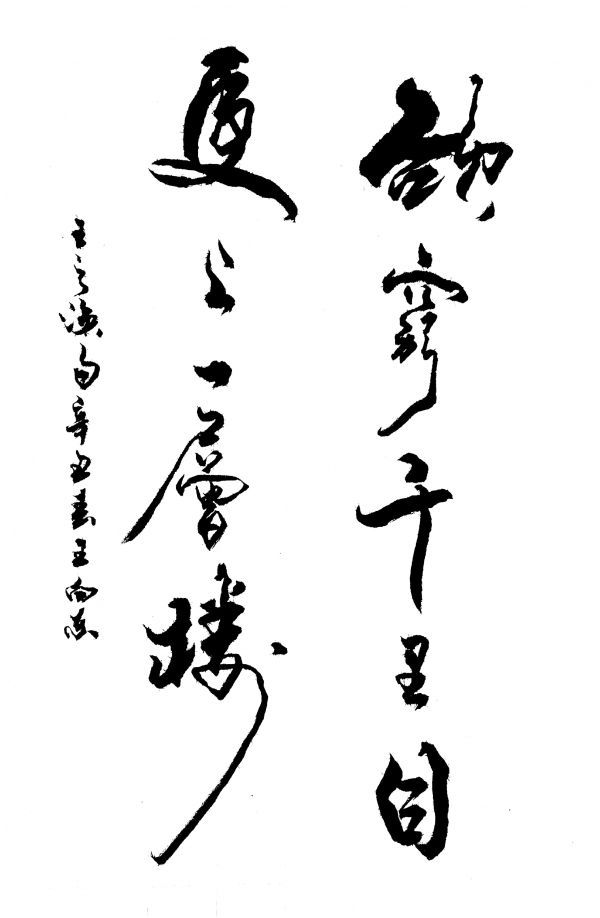 欲窮千里目
更上一層樓
王之渙句辛丑春王向东